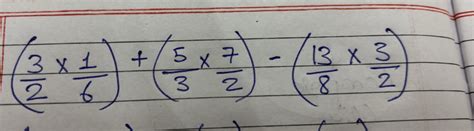 (3/2 × 1/6) + (5/3 × 7/2) − (13/8 × 3/2)